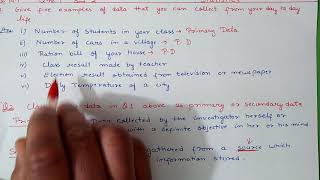 Give five examples of data that you can collect from your day to day
life.
Ans i) Number of Students in your class → Primary Data
ii) Number of cars in a village → P.D
iii) Ration bill of your house → P.D
iv) Class result made by teacher
v) Election result obtained from television or newspaper
vi) Temperature of a city
Q2 data in Q1 above as primary or secondary data
data collected by the investigator herself or
with a definite objective in her or his mind.
gathered from a source which
information stored.